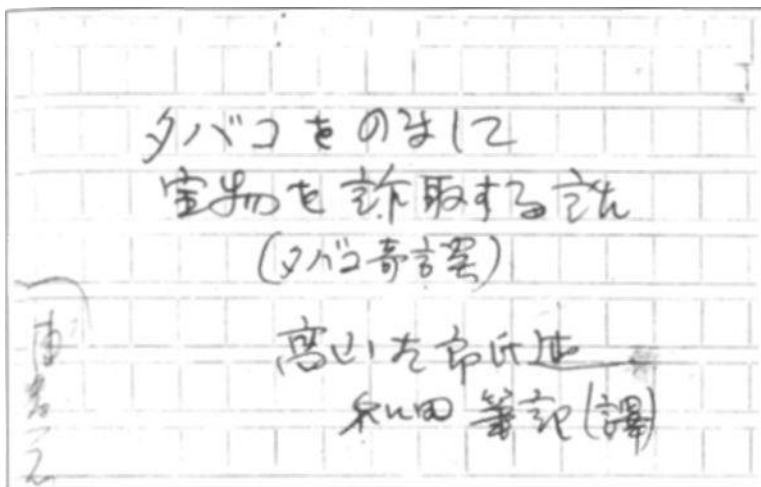 タバコをのまして
宝物を詐取する話
(タバコ奇譚)
高山太郎氏述
和田 筆記(譯)